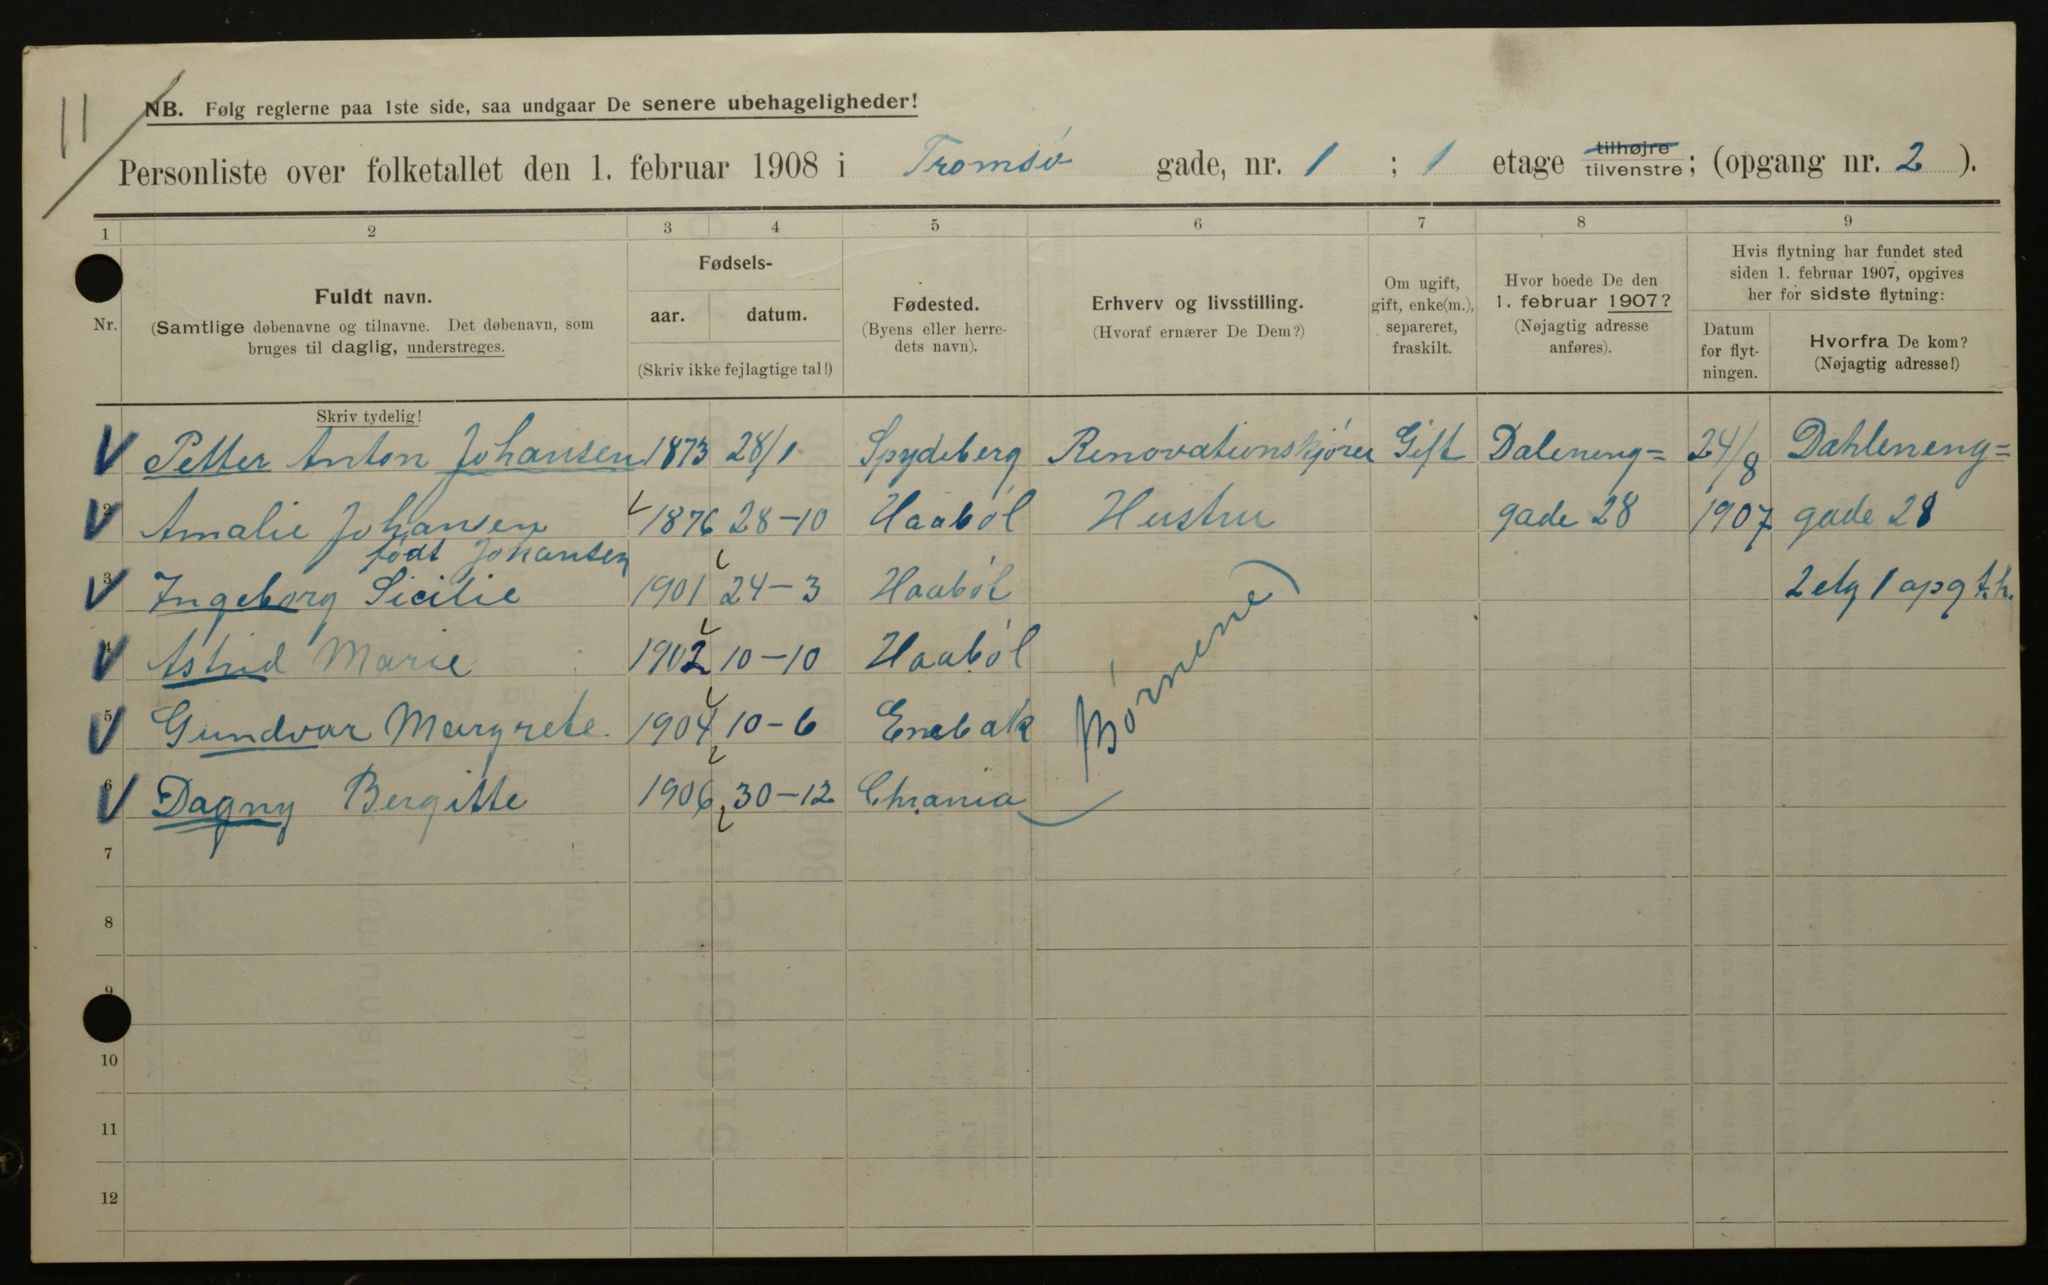 11
NB. Følg reglerne paa 1ste side, saa undgaar De senere ubehageligheder!
Personliste over folketallet den 1. februar 1908 i Tromsö gade, nr. 1 ; 1 etage tilhøjre tilvenstre; (opgang nr. 2 ).
1 2 3 4 5 6 7 8 9
Nr.
Fuldt navn.
(Samtlige døbenavne og tilnavne. Det døbenavn, som
bruges til daglig, understreges.
Fødsels-
aar. datum.
(Skriv ikke fejlagtige tal!)
Fødested.
(Byens eller herre-
dets navn).
Erhverv og livsstilling.
(Hvoraf ernærer De Dem?)
Om ugift,
gift, enke(m.),
separeret,
fraskilt.
Hvor boede De den
1. februar 1907?
(Nøjagtig adresse
anføres).
Hvis flytning har fundet sted
siden 1. februar 1907, opgives
her for sidste flytning:
Datum
for flyt-
ningen.
Hvorfra De kom?
(Nøjagtig adresse!)
Skriv tydelig!
Petter Anton Johansen 1873 28/1 Spydeberg Renovationskjörer Gift Daleneng= 24/8 Dahleneng=
2 Amalie Johansen 1876 28-10 Haaböl Hustru gade 28 1907 gade 28
födt Johansen
3 Ingeborg Sicilie 1901 24-3 Haaböl 2 etg 1 opg t.h.
4 Astrid Marie 1902 10-10 Haaböl
Börnene
5 Gundvor Margrete. 1904 10-6 Enebak
6 Dagny Bergitte 1906 30-12 Chrania
7
8
9
10
11
12